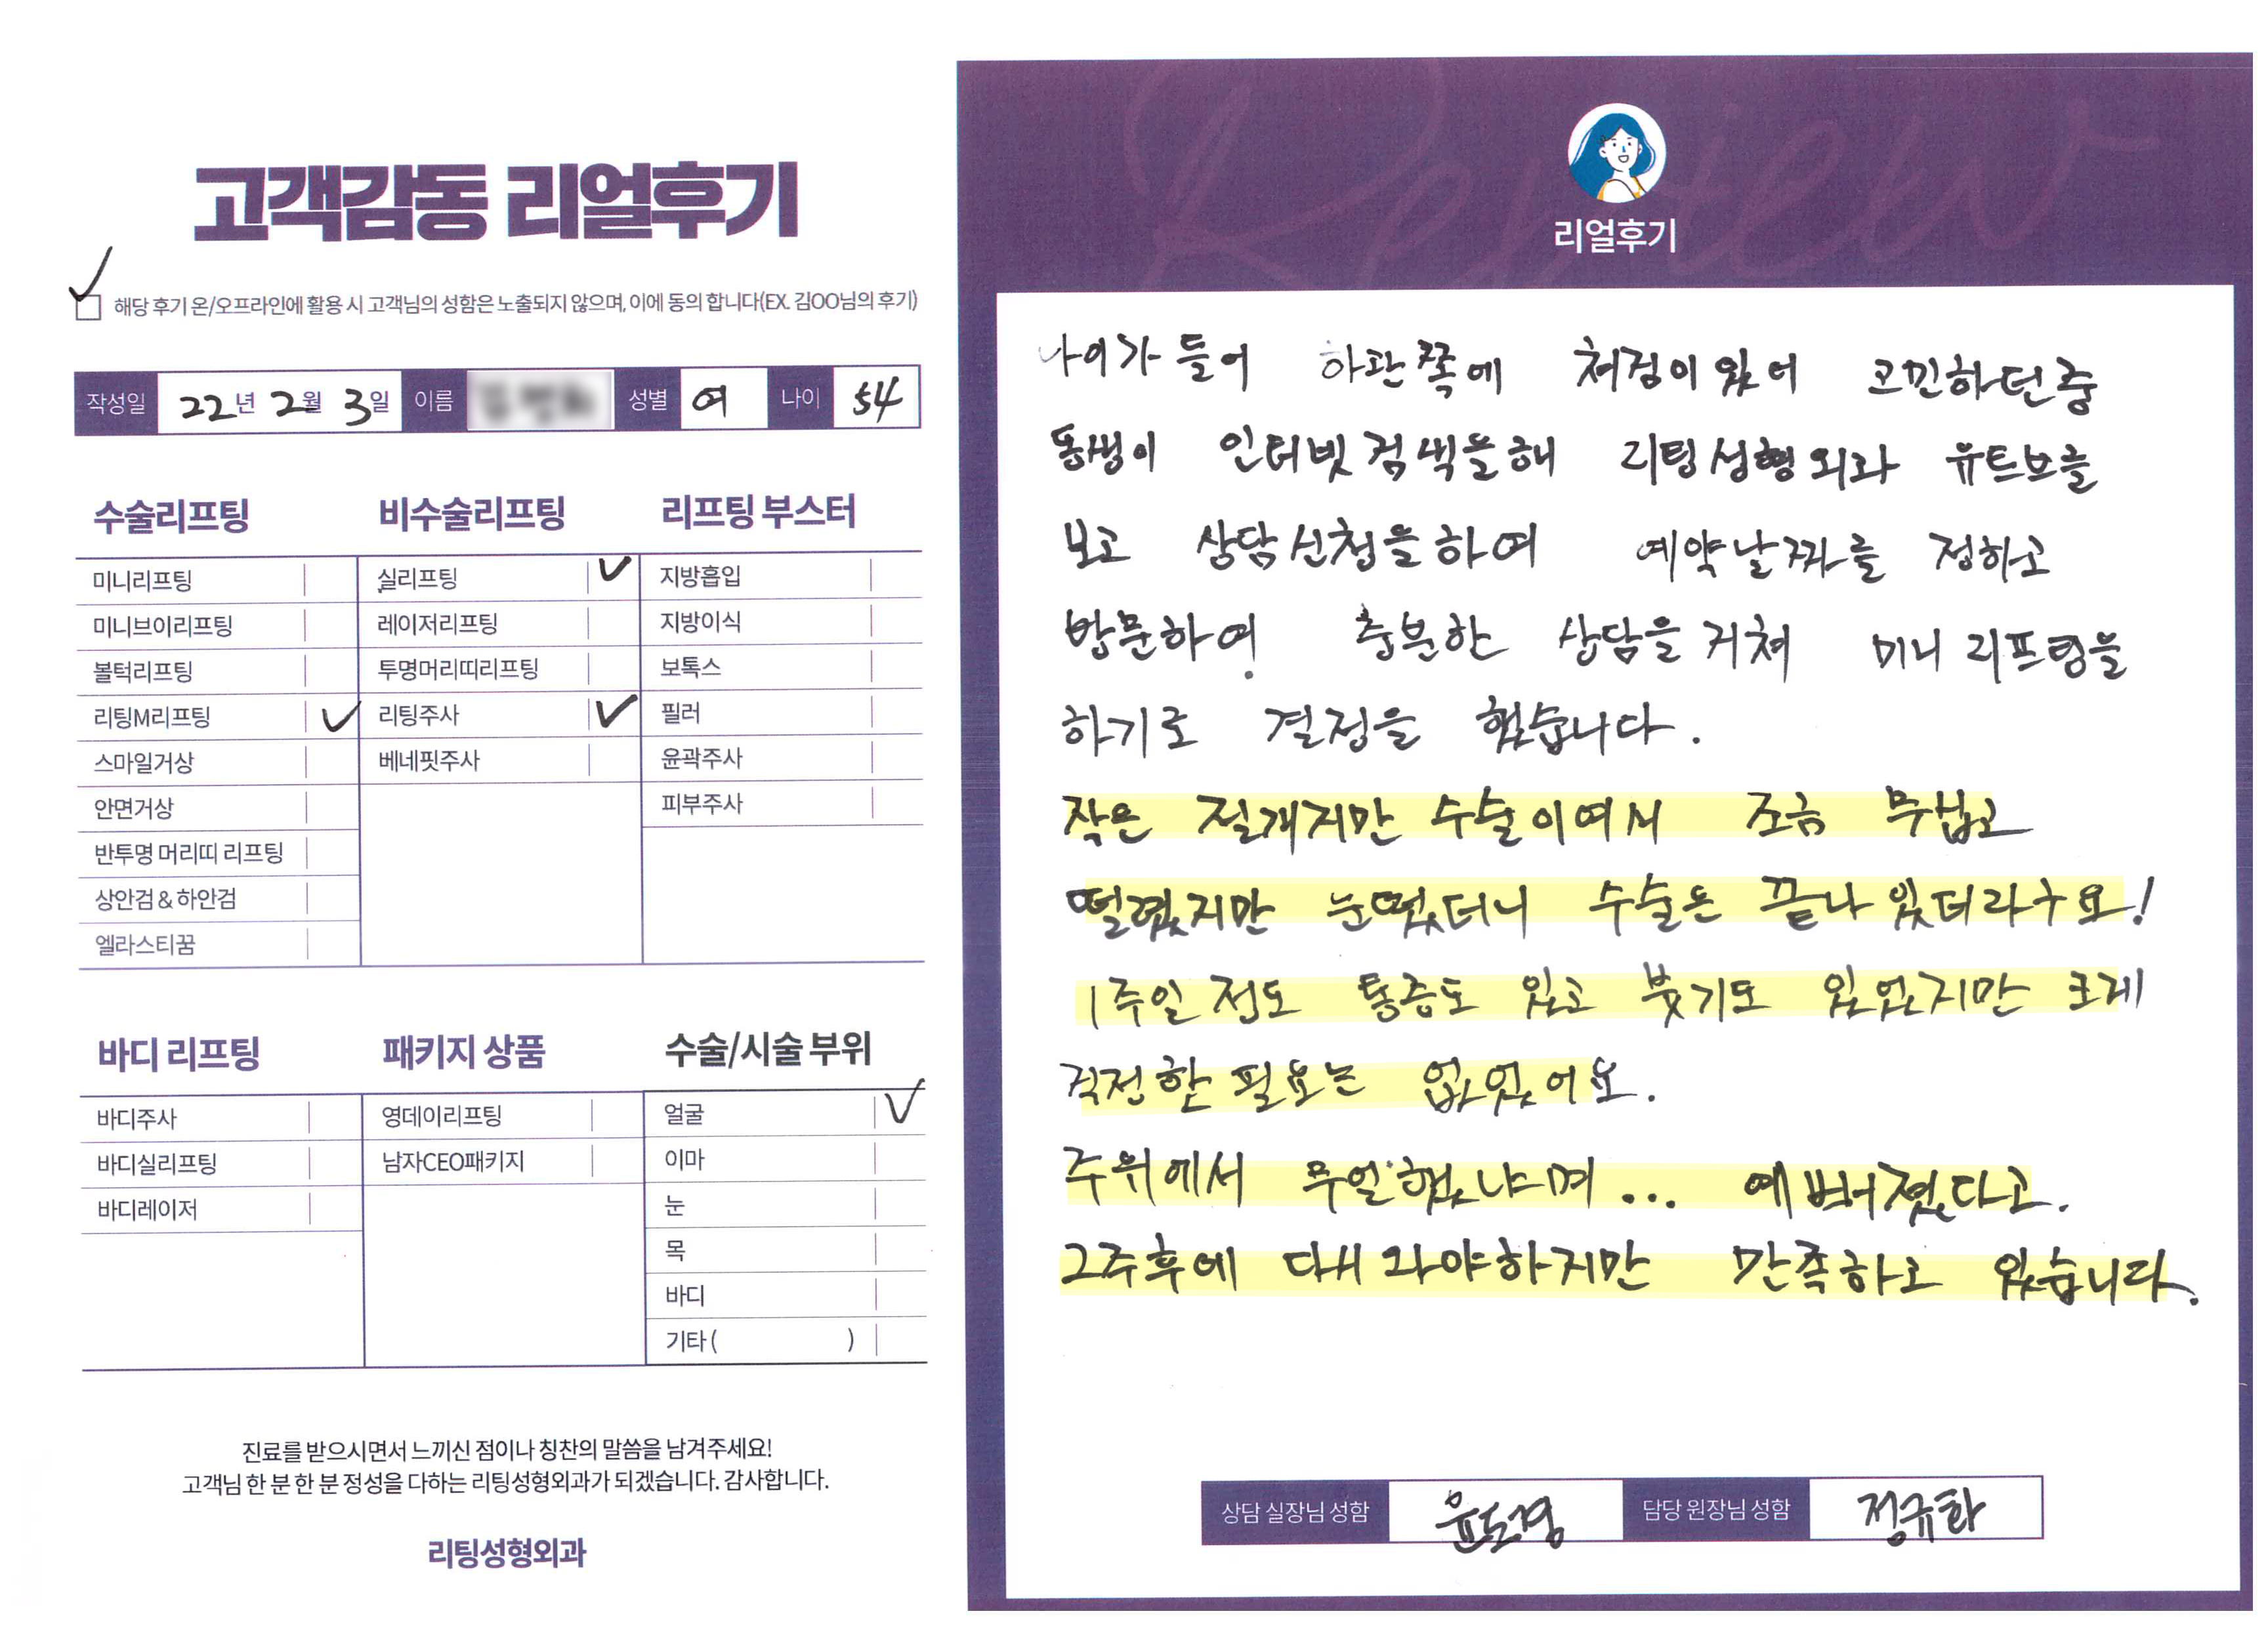 고객감동 리얼후기
해당 후기 온/오프라인에 활용 시 고객님의 성함은 노출되지 않으며, 이에 동의 합니다(EX. 김OO님의 후기)
작성일 22년 2월 3일 이름 성별 여 나이 54
수술리프팅
미니리프팅
미니브이리프팅
볼턱리프팅
리팅M리프팅 ✓
스마일거상
안면거상
반투명 머리띠 리프팅
상안검 & 하안검
엘라스티꿈
비수술리프팅
실리프팅 ✓
레이저리프팅
투명머리띠리프팅
리팅주사 ✓
베네핏주사
리프팅 부스터
지방흡입
지방이식
보톡스
필러
윤곽주사
피부주사
바디 리프팅
바디주사
바디실리프팅
바디레이저
패키지 상품
영데이리프팅
남자CEO패키지
수술/시술 부위
얼굴 ✓
이마
눈
목
바디
기타( )
진료를 받으시면서 느끼신 점이나 칭찬의 말씀을 남겨주세요!
고객님 한 분 한 분 정성을 다하는 리팅성형외과가 되겠습니다. 감사합니다.
리팅성형외과
Review
리얼후기
나이가 들어 하관쪽에 처짐이 있어 고민하던중
동생이 인터넷 검색을해 리팅성형외과 유트브를
보고 상담신청을하여 예약날짜를 정하고
방문하여 충분한 상담을 거쳐 미니 리프팅을
하기로 결정을 했습니다.
작은 절개지만 수술이여서 조금 무섭고
떨렸지만 눈떴더니 수술은 끝나 있더라구요!
1주일 정도 통증도 있고 붓기도 있었지만 크게
걱정할 필요는 없었어요.
주위에서 무얼 했냐며... 예뻐졌다고.
2주후에 다시 와야하지만 만족하고 있습니다.
상담 실장님 성함 윤도경 담당 원장님 성함 정규화